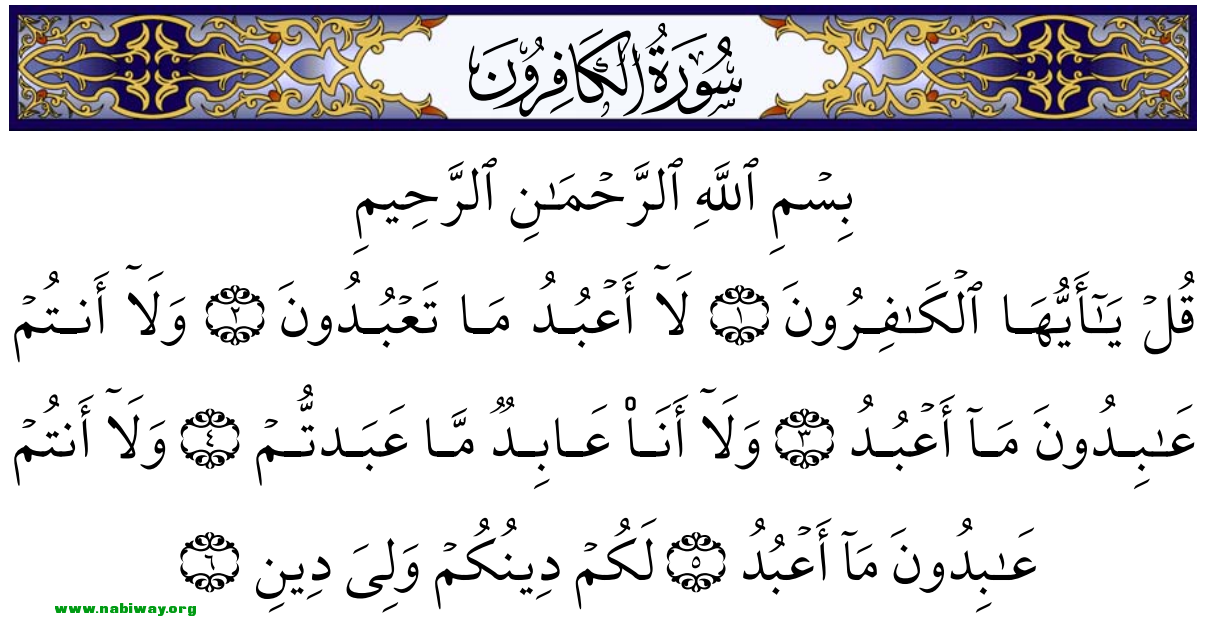 سُورَةُ الْكَافِرُونَ
بِسۡمِ ٱللَّهِ ٱلرَّحۡمَـٰنِ ٱلرَّحِيمِ
قُلۡ يَـٰٓأَيُّهَا ٱلۡكَـٰفِرُونَ ١ لَآ أَعۡبُدُ مَا تَعۡبُدُونَ ٢ وَلَآ أَنتُمۡ
عَـٰبِدُونَ مَآ أَعۡبُدُ ٣ وَلَآ أَنَا۠ عَابِدٌ مَّا عَبَدتُّمۡ ٤ وَلَآ أَنتُمۡ
عَـٰبِدُونَ مَآ أَعۡبُدُ ٥ لَكُمۡ دِينُكُمۡ وَلِىَ دِينِ ٦
www.nabiway.org